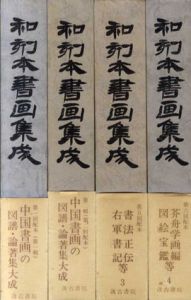 和刻本書画集成
和刻本書画集成
和刻本書画集成
和刻本書画集成
中国書画の
図譜・論著集大成
汲古書院
中国書画の
図譜・論著集大成
汲古書院
書法正伝等
右軍書記
3
汲古書院
芥舟学画編等
図絵宝鑑
4
汲古書院